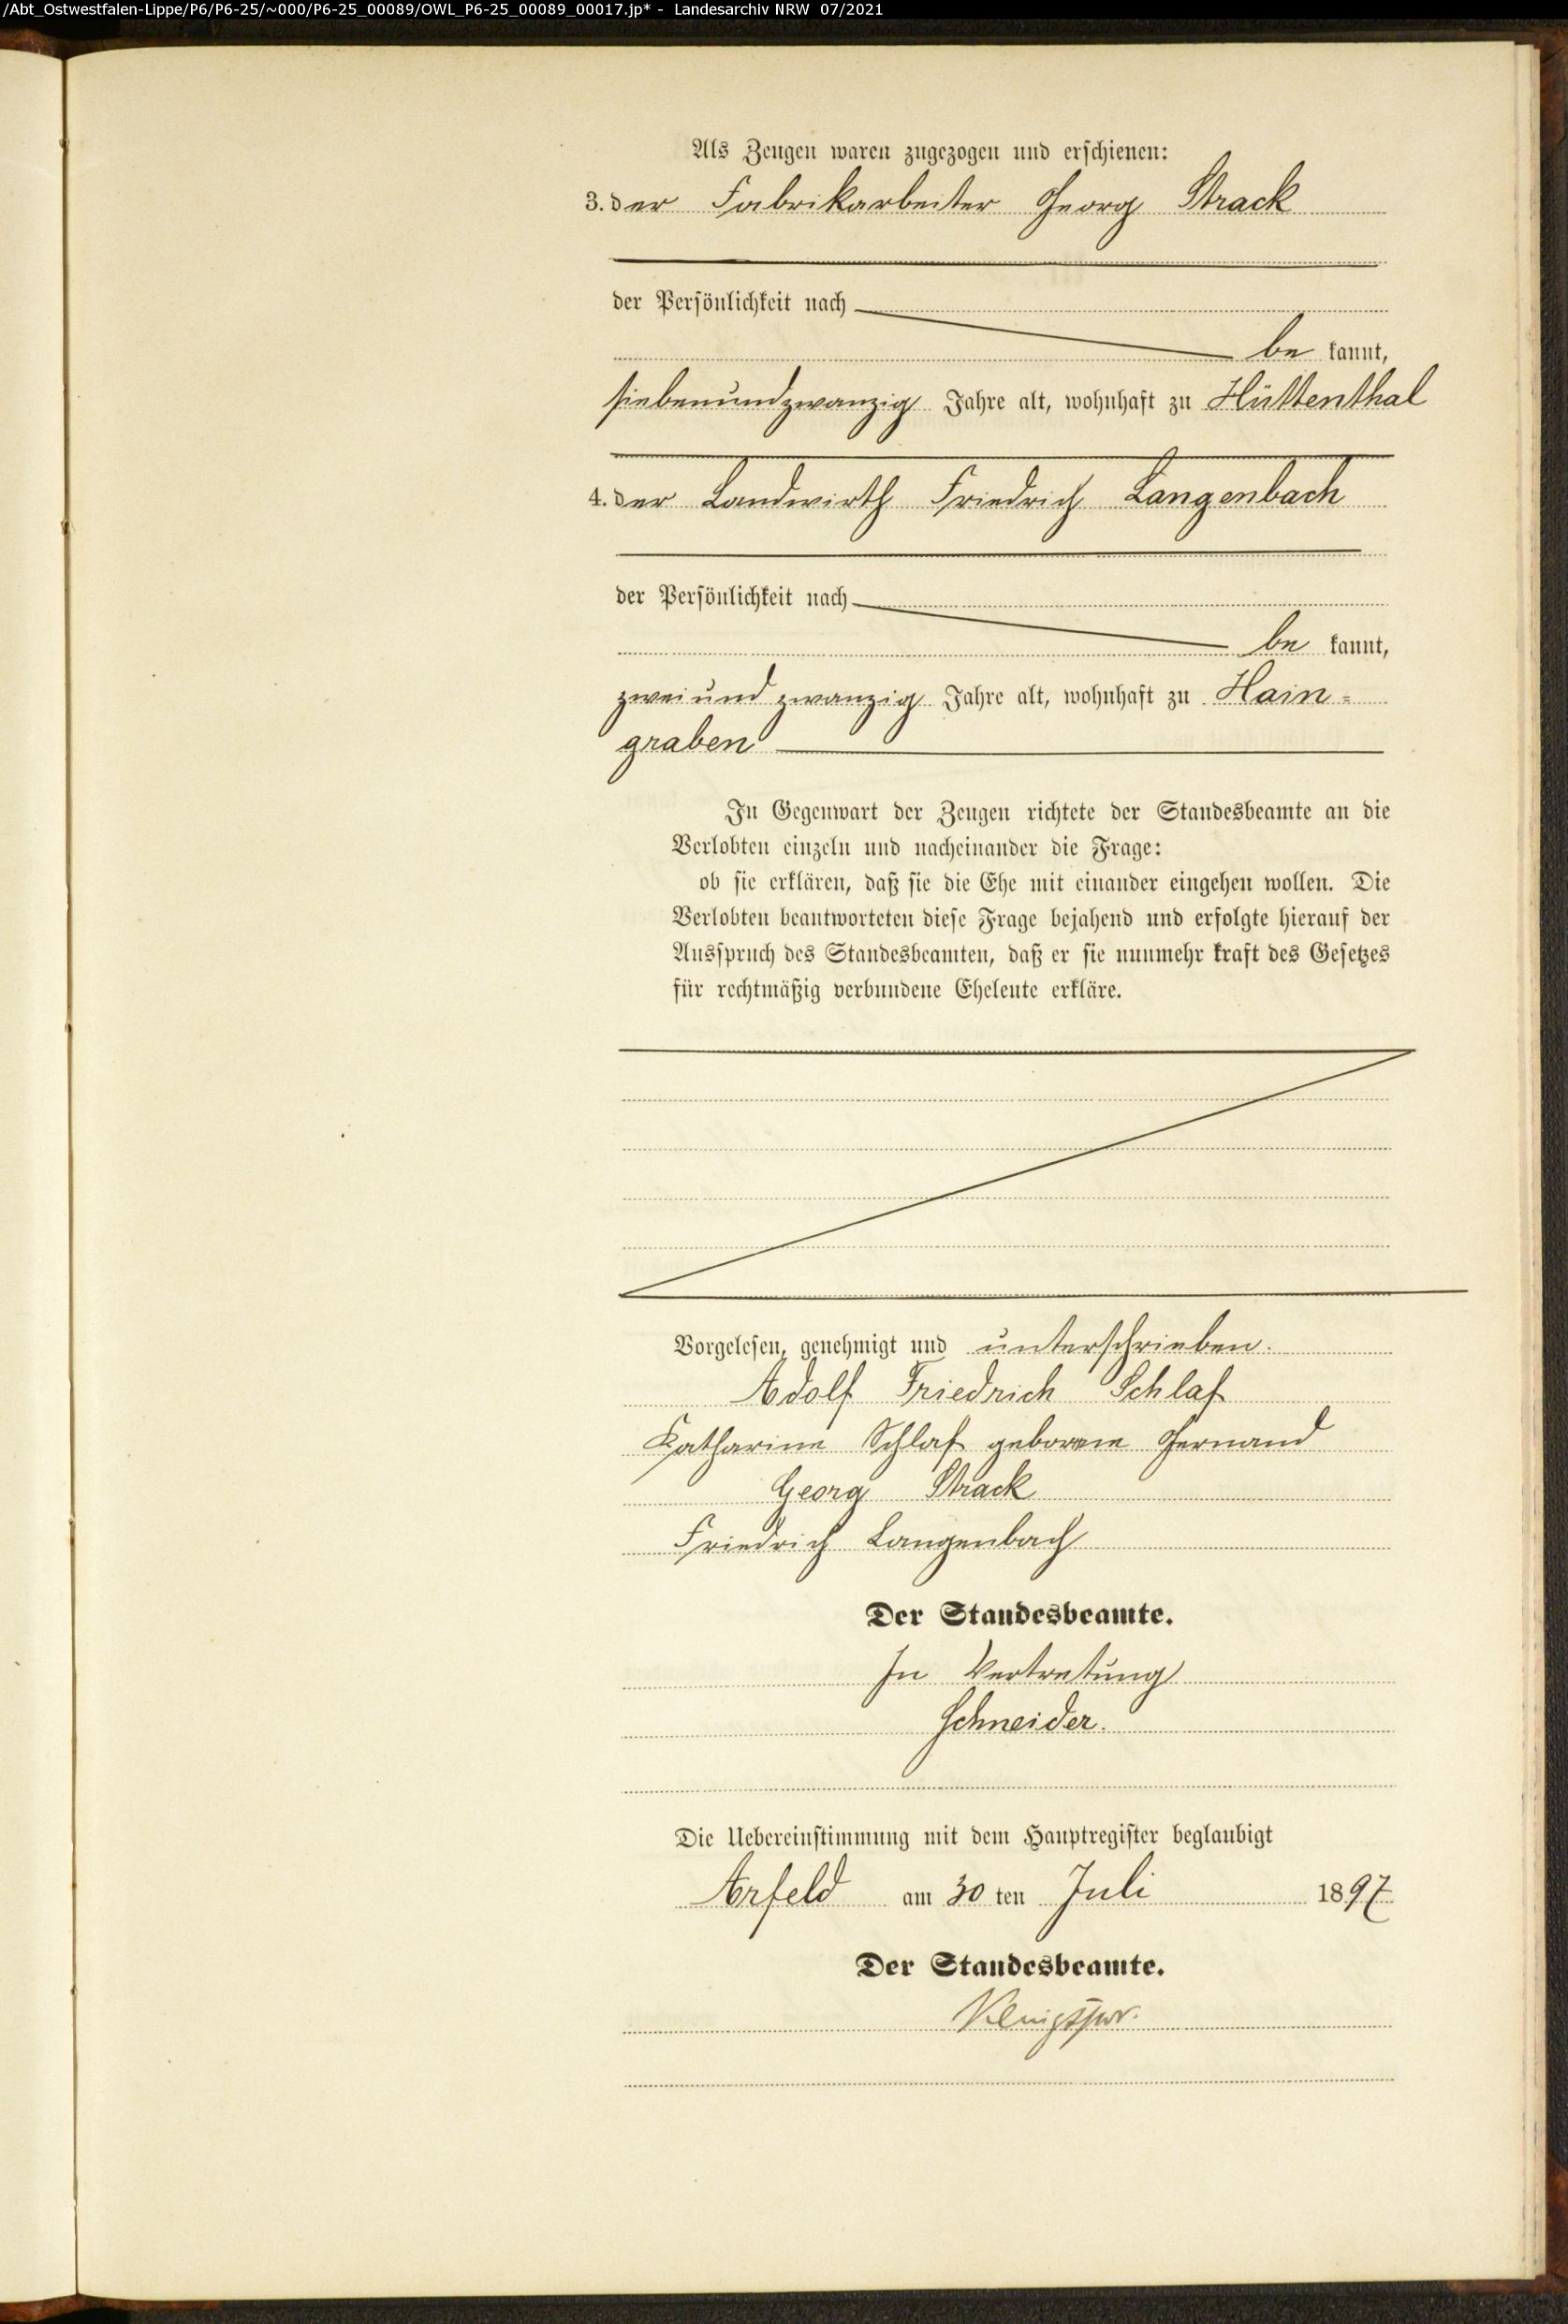 /Abt_Ostwestfalen-Lippe/P6/P6-25/~000/P6-25_00089/OWL_P6-25_00089_00017.jp* - Landesarchiv NRW 07/2021
Als Zeugen waren zugezogen und erschienen:
3. der Fabrikarbeiter Georg Strack
der Persönlichkeit nach
be kannt,
siebenundzwanzig Jahre alt, wohnhaft zu Hüttenthal
4. der Landwirth Friedrich Langenbach
der Persönlichkeit nach
be kannt,
zweiundzwanzig Jahre alt, wohnhaft zu Hain-
graben
In Gegenwart der Zeugen richtete der Standesbeamte an die
Verlobten einzeln und nacheinander die Frage:
ob sie erklären, daß sie die Ehe mit einander eingehen wollen. Die
Verlobten beantworteten diese Frage bejahend und erfolgte hierauf der
Ausspruch des Standesbeamten, daß er sie nunmehr kraft des Gesetzes
für rechtmäßig verbundene Eheleute erkläre.
Vorgelesen, genehmigt und unterschrieben.
Adolf Friedrich Schlaf
Katharine Schlaf geborene Gernand
Georg Strack
Friedrich Langenbach
Der Standesbeamte.
In Vertretung
Schneider.
Die Uebereinstimmung mit dem Hauptregister beglaubigt
Arfeld am 30 ten Juli 1897
Der Standesbeamte.